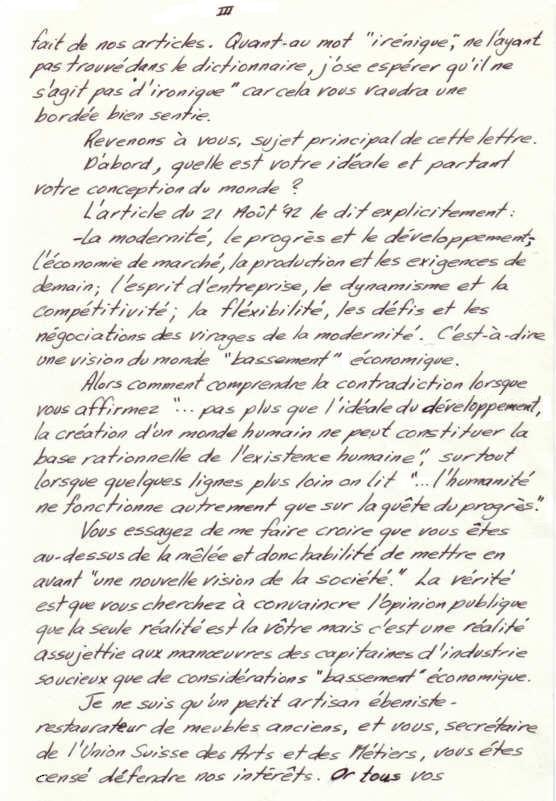 III
fait de nos articles. Quant-au mot "irénique", ne l'ayant
pas trouvé dans le dictionnaire, j'ose espérer qu'il ne
s'agit pas d'ironique" car cela vous vaudra une
bordée bien sentie.
Revenons à vous, sujet principal de cette lettre.
D'abord, quelle est votre idéale et partant
votre conception du monde ?
L'article du 21 Août '92 le dit explicitement :
-La modernité, le progrès et le développement;
l'économie de marché, la production et les exigences de
demain; l'esprit d'entreprise, le dynamisme et la
compétitivité; la fléxibilité, les défis et les
négociations des virages de la modernité. C'est-à-dire
une vision du monde "bassement" économique.
Alors comment comprendre la contradiction lorsque
vous affirmez "... pas plus que l'idéale du développement,
la création d'un monde humain ne peut constituer la
base rationnelle de l'existence humaine", surtout
lorsque quelques lignes plus loin on lit "...l'humanité
ne fonctionne autrement que sur la quête du progrès."
Vous essayez de me faire croire que vous êtes
au-dessus de la mêlée et donc habilité de mettre en
avant "une nouvelle vision de la société." La vérité
est que vous cherchez à convaincre l'opinion publique
que la seule réalité est la vôtre mais c'est une réalité
assujettie aux manœuvres des capitaines d'industrie
soucieux que de considérations "bassement" économique.
Je ne suis qu'un petit artisan ébeniste-
restaurateur de meubles anciens, et vous, secrétaire
de l'Union Suisse des Arts et des Métiers, vous êtes
censé défendre nos intérêts. Or tous vos